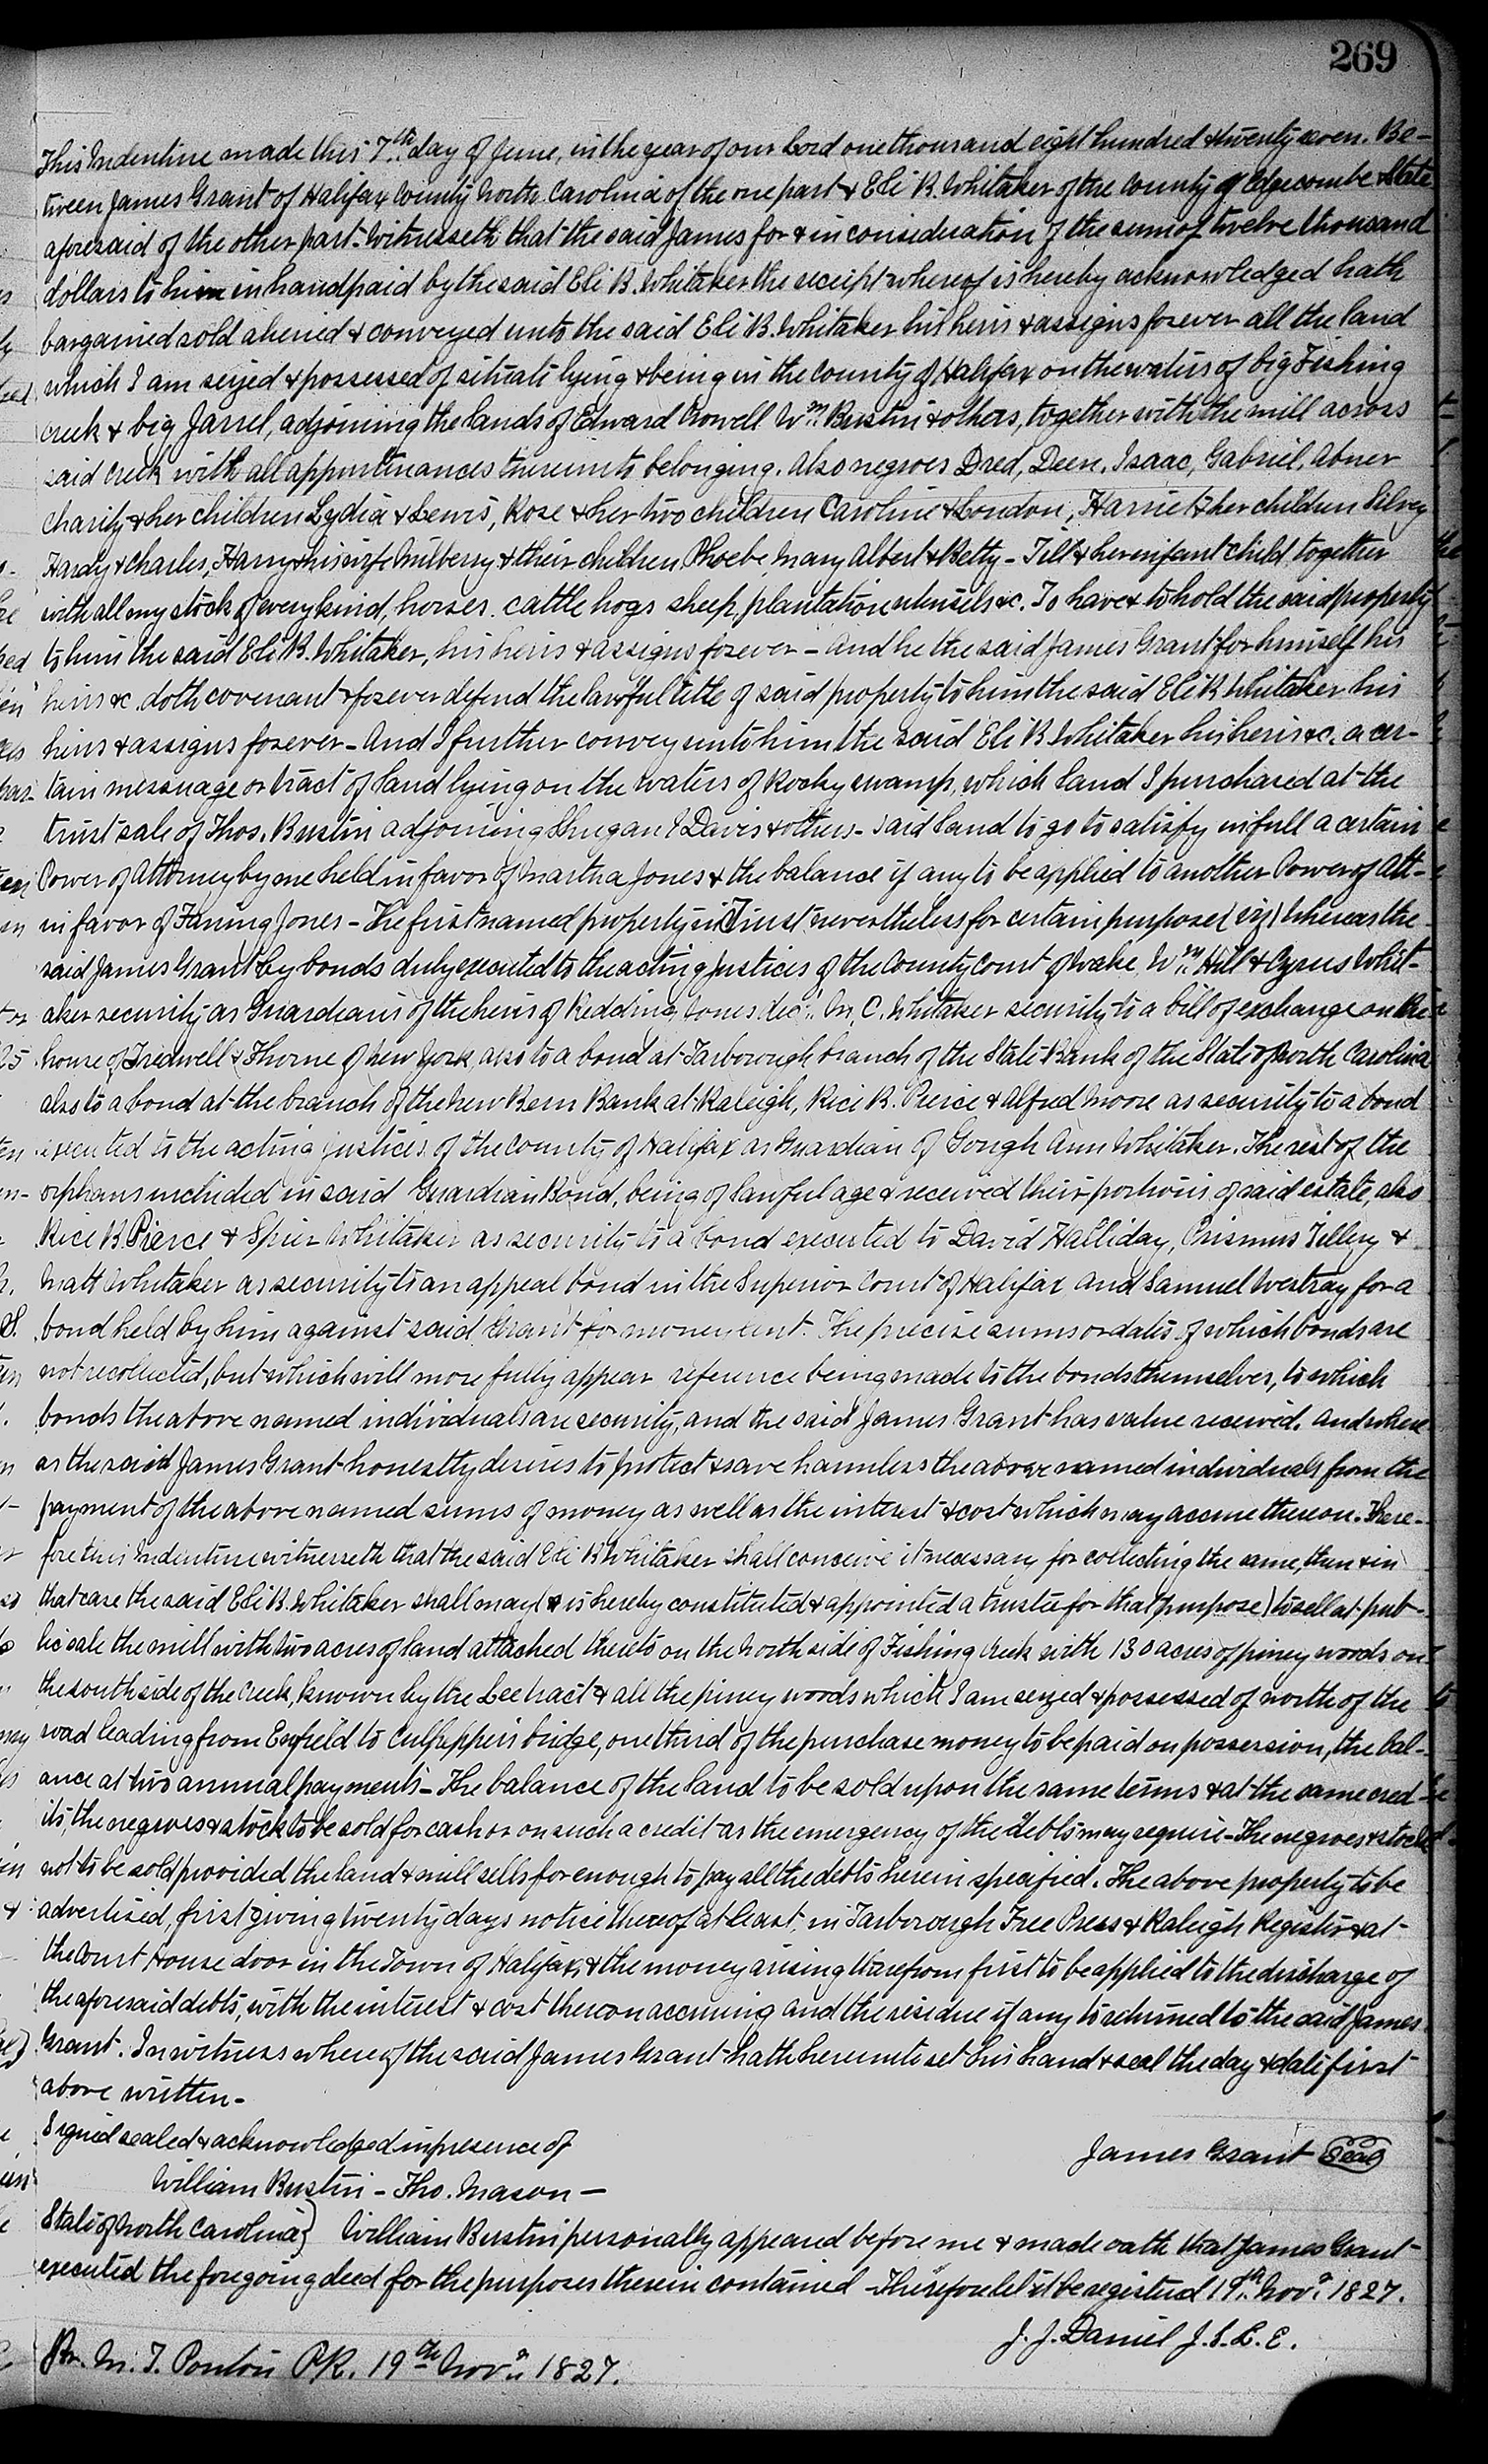 269
This Indenture made this 7th day of June, in the year of our Lord one thousand eight hundred & twenty seven. Be-
tween James Grant of Halifax County North Carolina of the one part & Eli B. Whitaker of the County of Edgecombe & State
aforesaid of the other part. Witnesseth that the said James for & in consideration of the sum of twelve thousand
dollars to him in hand paid by the said Eli B. Whitaker the receipt whereof is hereby acknowledged hath
bargained sold aliened & conveyed unto the said Eli B. Whitaker his heirs & assigns forever all the land
which I am seized & possessed of situate lying & being in the County of Halifax on the waters of big Fishing
creek & big Jarrel, adjoining the lands of Edward Crowell Wm. Bustin & others, together with the mill across
said creek with all appurtenances thereunto belonging. Also negroes Dred, Deen, Isaac, Gabriel, Abner
Charity & her children Lydia & Lewis, Rose & her two children Caroline & London, Harriet & her children Silvey
Hardy & Charles, Harry & his wife Milberry & their children Phoebe, Mary Albert & Betty - Tilt & her infant child together
with all my stock of every kind, horses. cattle hogs sheep, plantation utensils &c. To have & to hold the said property
to him the said Eli B. Whitaker, his heirs & assigns forever - and he the said James Grant for himself his
heirs &c. doth covenant & forever defend the lawful title of said property to him the said Eli B Whitaker his
heirs & assigns forever - And I further convey unto him the said Eli B Whitaker his heirs &c. a cer-
tain messuage or tract of land lying on the waters of Rocky swamp, which land I purchased at the
trust sale of Thos. Bustin adjoining Davis & others - said land to go to satisfy in full a certain
Power of Attorney by me held in favor of Martha Jones & the balance if any to be applied to another Power of Att-
in favor of Faning Jones - The first named property in Trust nevertheless for certain purpose (viz) Whereas the
said James Grant by bonds duly executed to the acting justices of the County Court of Wake, Wm. Hill & Cyrus Whit-
aker security as Guardians of the heirs of Redding Jones decd. M. C. Whitaker security to a bill of exchange on the
house of Tredwell & Thorne of New York, also to a bond at Tarborough branch of the State Bank of the State of North Carolina
also to a bond at the branch of the New Bern Bank at Raleigh, Rice B. Pierce & Alfred Moore as security to a bond
executed to the acting justices of the County of Halifax as Guardian of Gough Ann Whitaker. The rest of the
orphans included in said Guardian Bond, being of lawful age & received their portions of said estate, also
Rice B. Pierce & Spier Whitaker as security to a bond executed to David Halliday, Prismus Tillery &
Matt Whitaker as security to an appeal bond in the Superior Court of Halifax and Samuel Westray for a
bond held by him against said Grant for money lent. The precise sums or dates of which bonds are
not recollected, but which will more fully appear reference being made to the bonds themselves, to which
bonds the above named individuals are security, and the said James Grant has value received. And where-
as the said James Grant honestly desires to protect & save harmless the above named individuals from the
payment of the above named sums of money as well as the interest & cost which may accrue thereon. There-
fore this Indenture witnesseth that the said Eli B Whitaker shall conceive it necessary for collecting the same, then & in
that case the said Eli B. Whitaker shall may (& is hereby constituted & appointed a trustee for that purpose) to sell at pub-
lic sale the mill with two acres of land attached thereto on the North side of Fishing Creek with 130 acres of piney woods on
the south side of the Creek, known by the Lee tract & all the piney woods which I am seized & possessed of north of the
road leading from Enfield to Culpeppers bridge, one third of the purchase money to be paid on possession, the bal-
ance at two annual payments - The balance of the land to be sold upon the same terms & at the same cred-
its, the negroes & stock to be sold for cash or on such a credit as the emergency of the debts may require - The negroes & stock
not to be sold provided the land & mill sells for enough to pay all the debts herein specified. The above property to be
advertised, first giving twenty days notice thereof at least, in Tarborough Free Press & Raleigh Register & at
the Court House door in the Town of Halifax, & the money arising therefrom first to be applied to the discharge of
the aforesaid debts, with the interest & cost thereon accruing and the residue if any to returned to the said James
Grant. In witness whereof the said James Grant hath hereunto set his hand & seal the day & date first
above written -
Signed sealed & acknowledged in presence of
James Grant (Seal)
William Bustin - Tho. Mason -
State of North Carolina } William Bustin personally appeared before me & made oath that James Grant
executed the foregoing deed for the purposes therein contained - Therefore let it be registered 19th. Nov. 1827.
J. J. Daniel J.S.L.E.
Pr. M. T. Ponton P.R. 19th Novr. 1827.